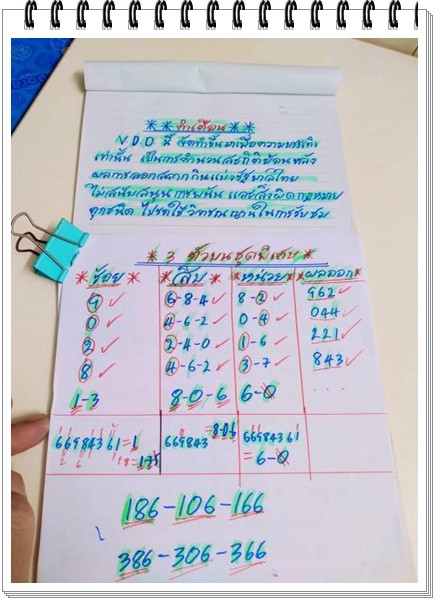 ** คำเตือน **
V D O นี้ จัดทำขึ้นมาเพื่อความบรรเทิง
เท่านั้น เป็นการคำนวนสถิติย้อนหลัง
ผลการออกสลากกินแบ่งรัฐบาลไทย
ไม่สนับสนุนการพนัน และสิ่งผิดกฎหมาย
ทุกชนิด โปรดใช้วิจารณญานในการรับชม
* 3 ตัวบนชุดพิเศษ *
*ร้อย* *สิบ* *หน่วย* *ผลออก*
9 ✓ 6-8-4 ✓ 8-2 ✓ 962 ✓
0 ✓ 4-6-2 ✓ 0-4 ✓ 044 ✓
2 ✓ 2-4-0 ✓ 1-6 ✓ 221 ✓
8 ✓ 4-6-2 ✓ 3-7 ✓ 843 ✓
1-3 8-0-6 6-0 ....
66984361=1 669843 =8-0-6 66984361
= 6-0
186-106-166
386-306-366